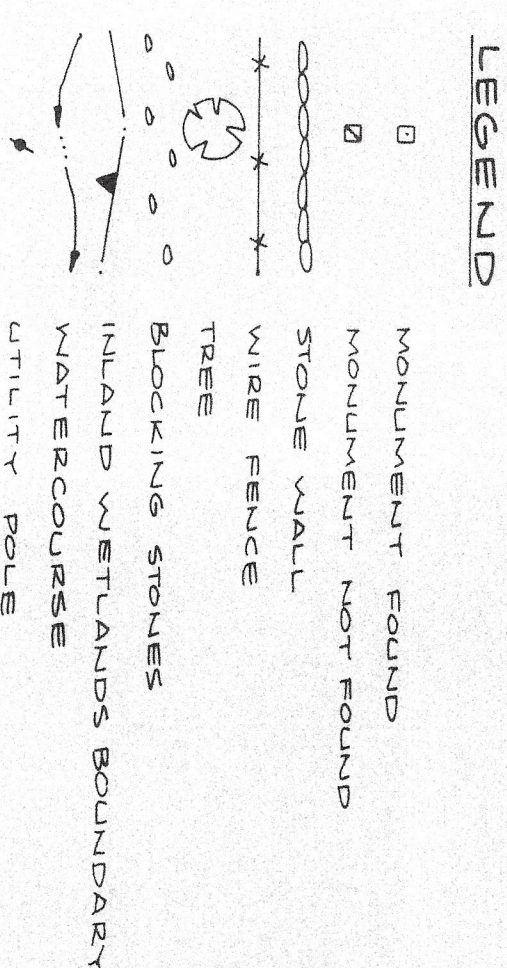 LEGEND
MONUMENT FOUND
MONUMENT NOT FOUND
STONE WALL
WIRE FENCE
TREE
BLOCKING STONES
INLAND WETLANDS BOUNDARY
WATERCOURSE
UTILITY POLE